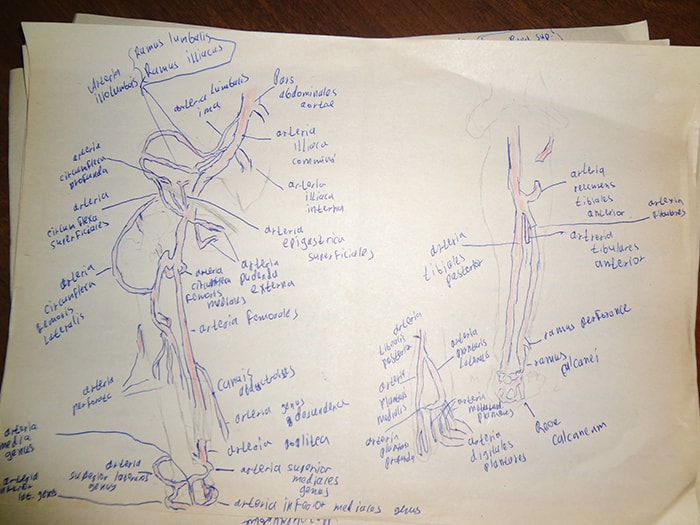 Ramus lumbalis
Ramus illiacus
Arteria
illolumbals
arteria lumbalis
ima
Pars
abdominales
aortae
arteria
illiaca
communi
arteria
illiaca
interna
arteria
circumflexa
profunda
arteria
cirkumflexa
superficiales
arteria
circumflexa
femoris
lateralis
arteria
epigastrica
superficiales
arteria
pudenda
externa
arteria
circumflexa
femoris
mediales
arteria femorales
arteria
perforate
Canals
arteria genus
descendence
arteria poplitea
arteria
media
genus
arteria
superior laterales
genus
arteria superior
mediares
genus
arteria
lat. genus
arteria inferior mediales genus
arteria
recurens
tibiales
anterior
arteria
fibulares
arteria
tibiales
posterior
tibulares
anterior
ramus perforance
ramus
calcanei
Rete
calcaneum
arteria
tibialis
posterior
arteria
plantaris
lateralis
arteria
plantar
medialis
arteria
plantares
arteria
profunda
arteria
digitales
plantares